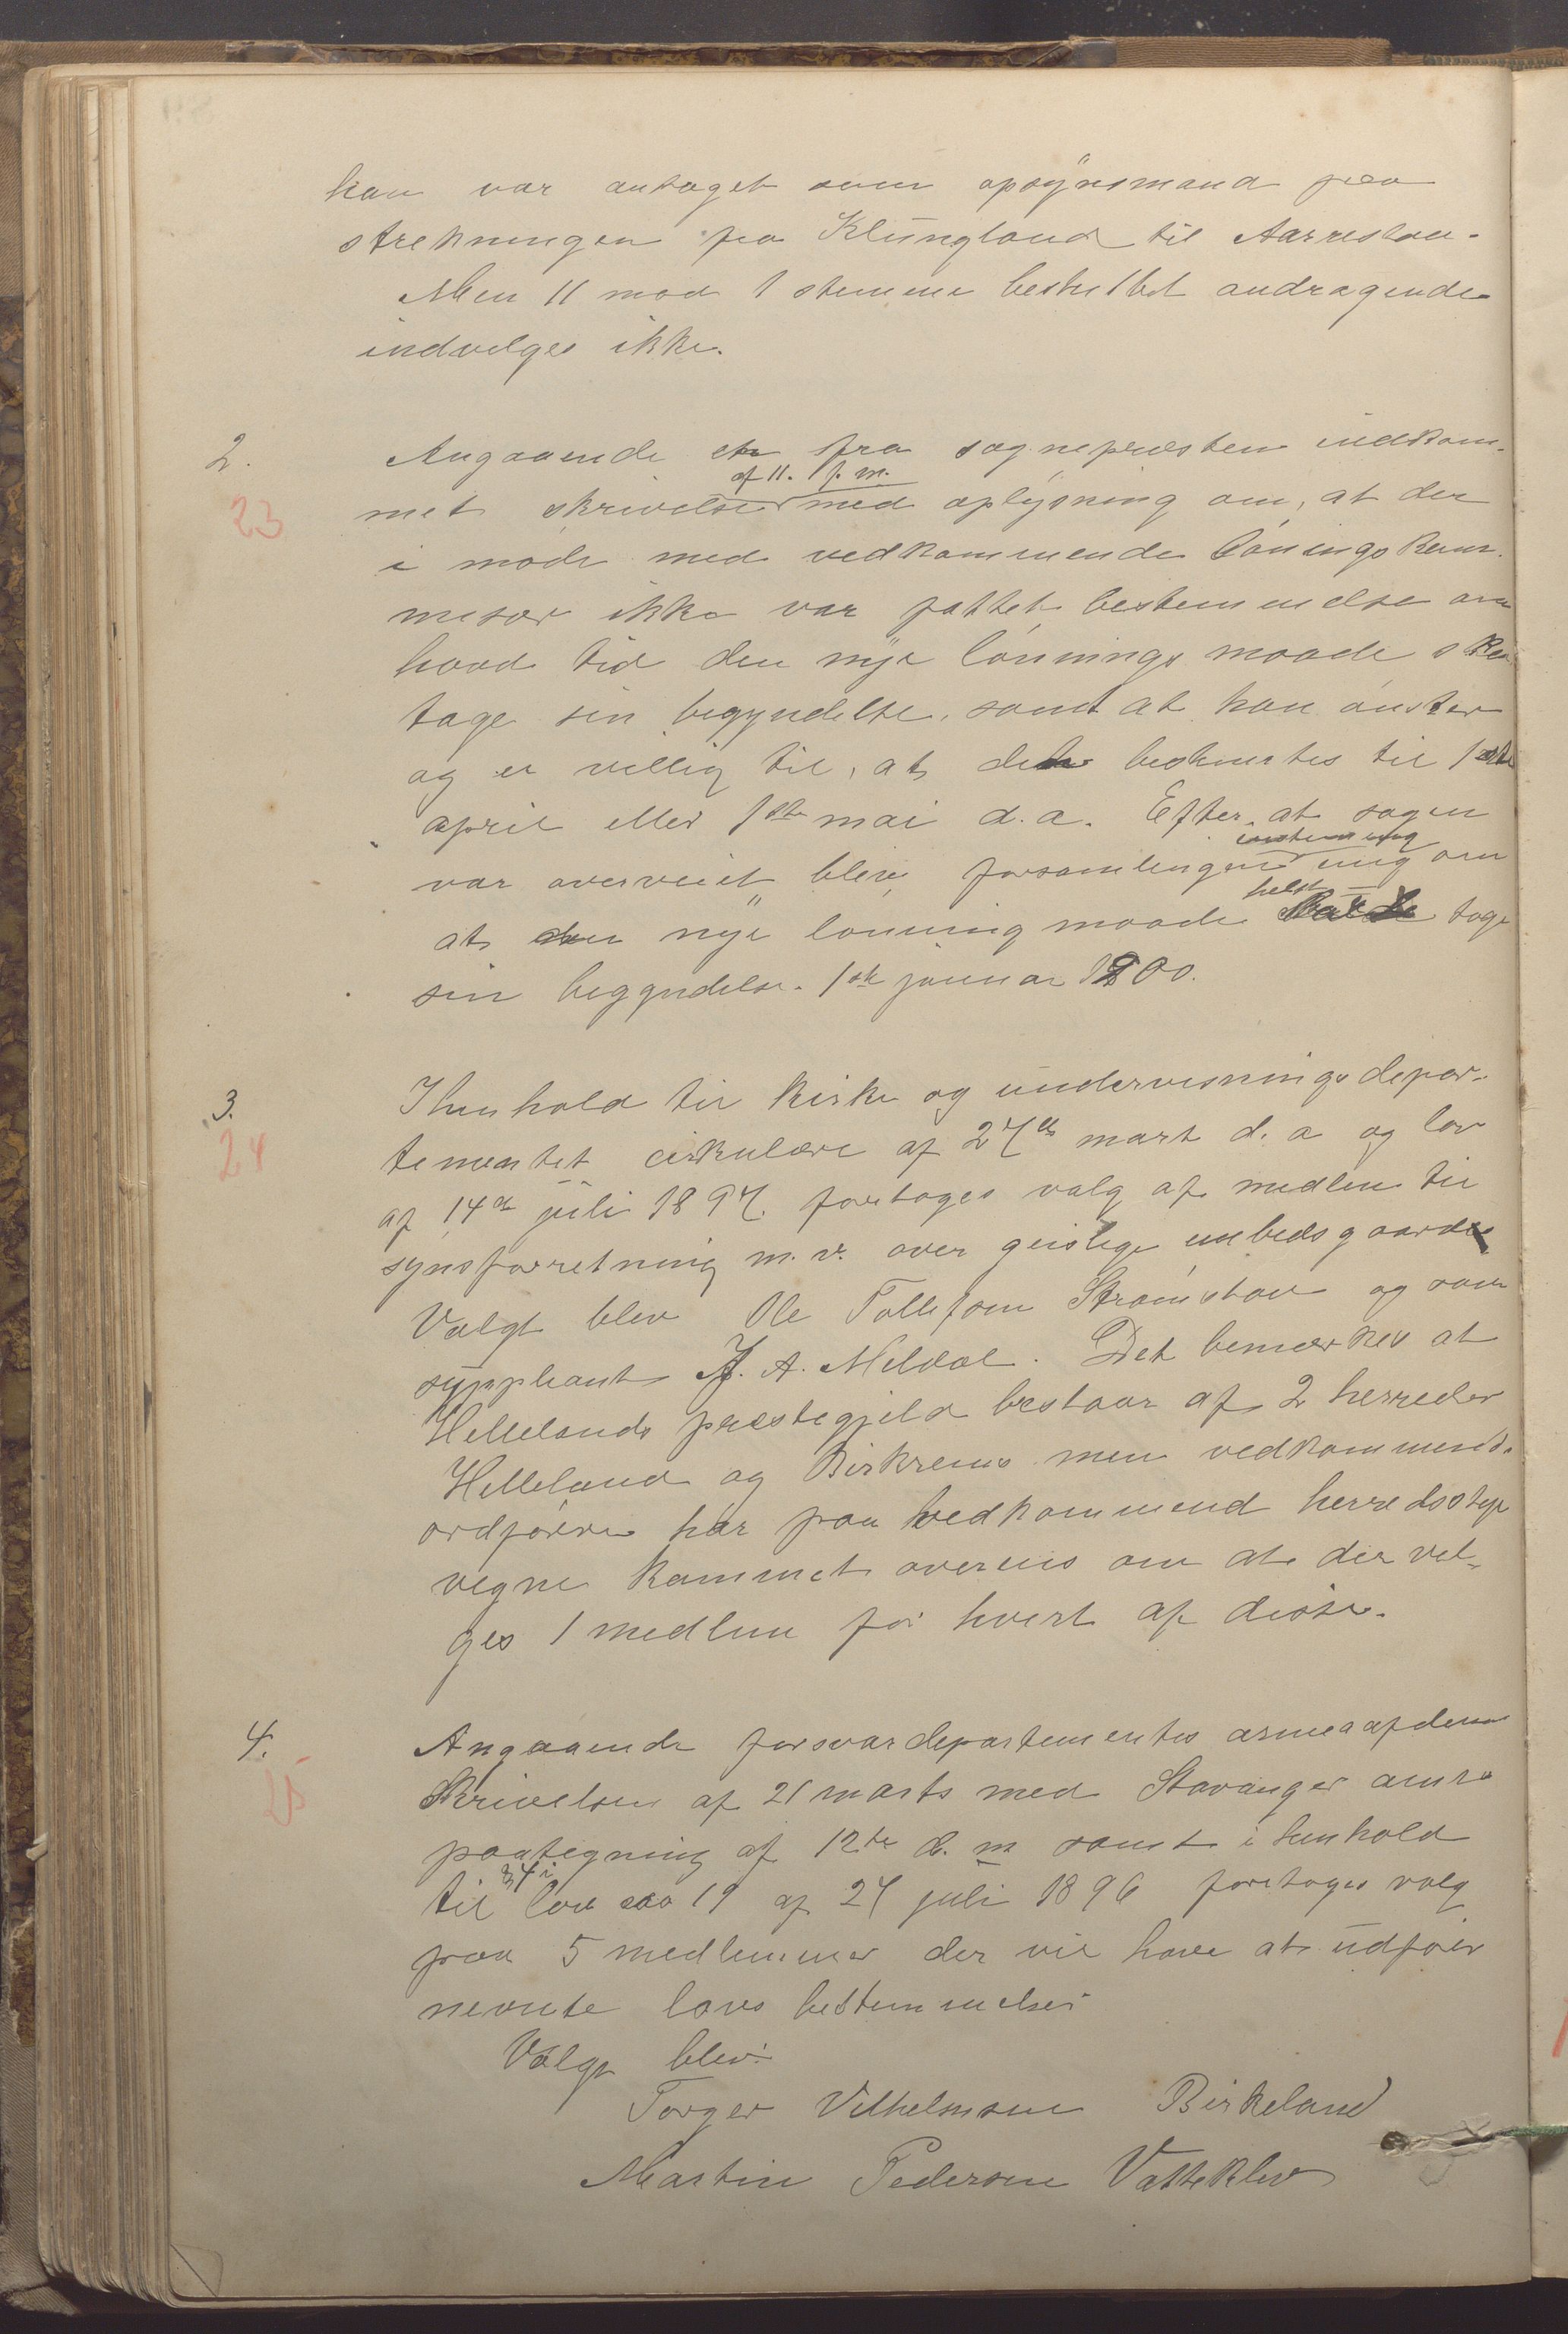 han var antaget som opsÿnsmand paa
strekningen fra Klungland til Aarrestaa-
Men 11 mod 1 stemme besluttet andragende
indvelges ikke.
2.
23
Angaaende en fra sognepresten indkom-
af 11. f. m.
met skrivelse med oplÿsning om, at der
i møde med vedkommende lønings kom-
misær ikke var fattet bestemmelse om
hvad tid den nye lønnings maade skal
tage sin begyndelse, samt at han ønsker
og er villig til, at det beskuertes til 1ste
april eller 1ste mai d.a. Efter at sagen
enstemmig
var overveiet blev forsamlingen enig om
helst
at den nye lønning maade tage
sin begyndelse 1ste januar 1900.
3.
24
Ihenhold til kirke og undervisnings depar-
tementet cirkulære af 27de mart d. a og lov
af 14de juli 1897. foretages valg af medlem til
synsforretning m. v. over geistlige embedsgaarde
Valgt blev Ole Tollefsen Strømstad og som
suppleant J. A. Meldal. Det bemærkes at
Hellelands prestegjeld bestaar af 2 herreder
Helleland og Birkrems men vedkommende
ordførere har paa vedkommend herredssty
vegne kommet overens om at der vel-
ges 1 medlem for hvert af disse.
4.
25
Angaaende forsvardepartementes armeeafdem
Skrivelsen af 21 marts med Stavanger amts
paategning af 12te d. m samt i henhold
§ 4 i
til lov no 19 af 27 juli 1896 foretages valg
paa 5 medlemmer der vil have at udføer
nevnte lovs bestemmelser
Valgt blev:
Torger Vilhelmsen Birkeland
Martin Pedersen Vatteklev